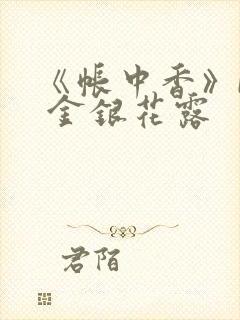 《帐中香》
金银花露
君陌